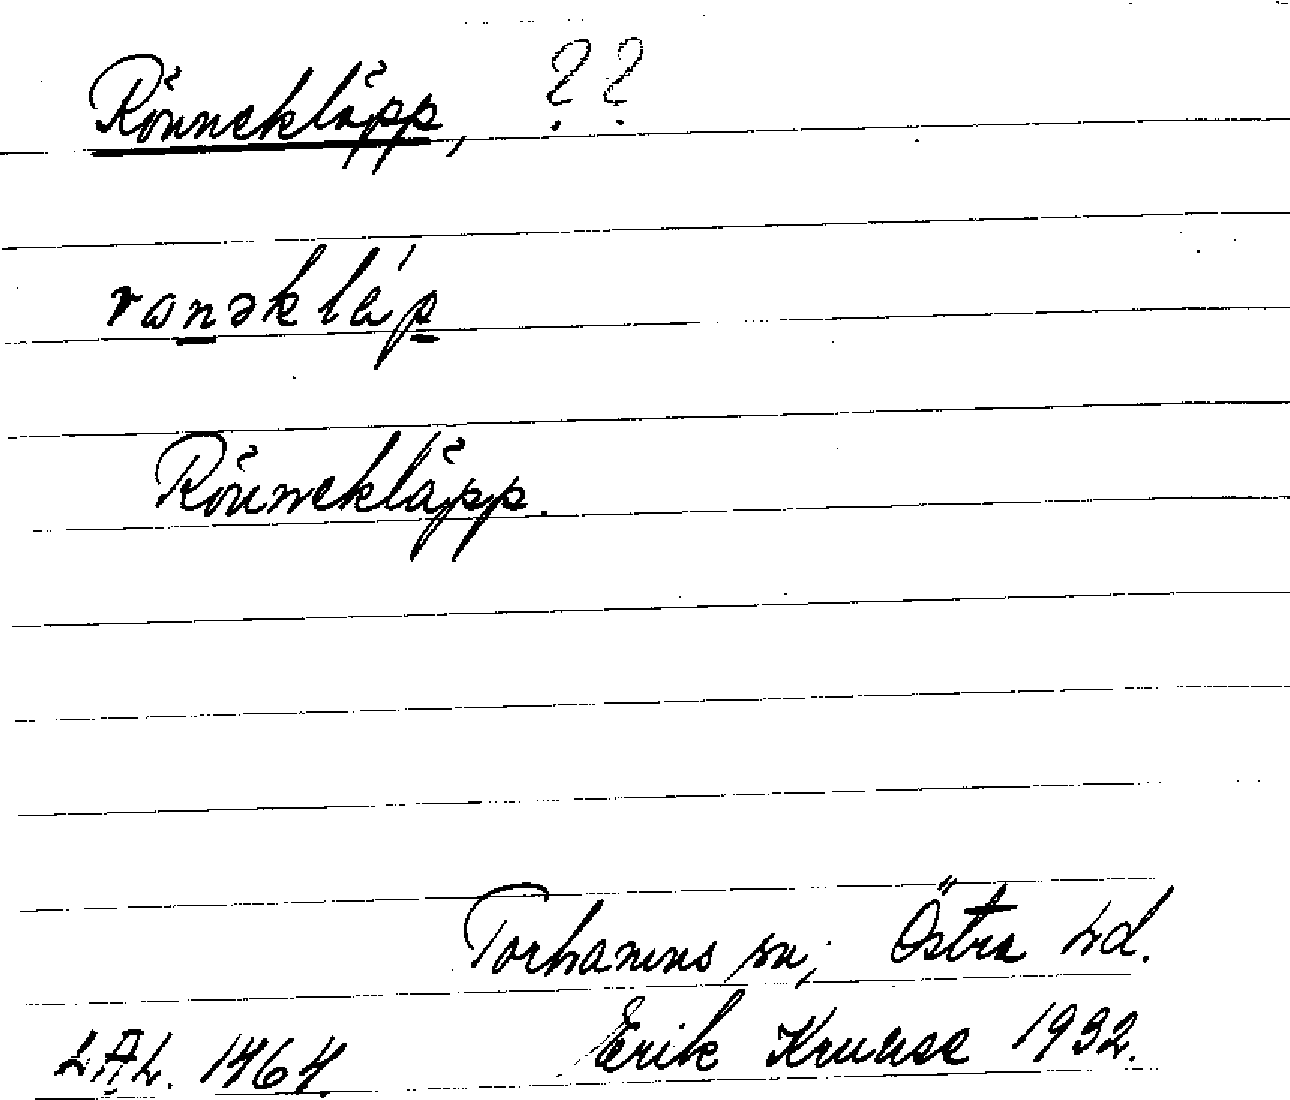 Rönnekläpp, ??
rɷnəkláp
Rönnekläpp.
Torhamns sn; Östra hd.
Erik Kruuse 1932.
LAL. 1464.